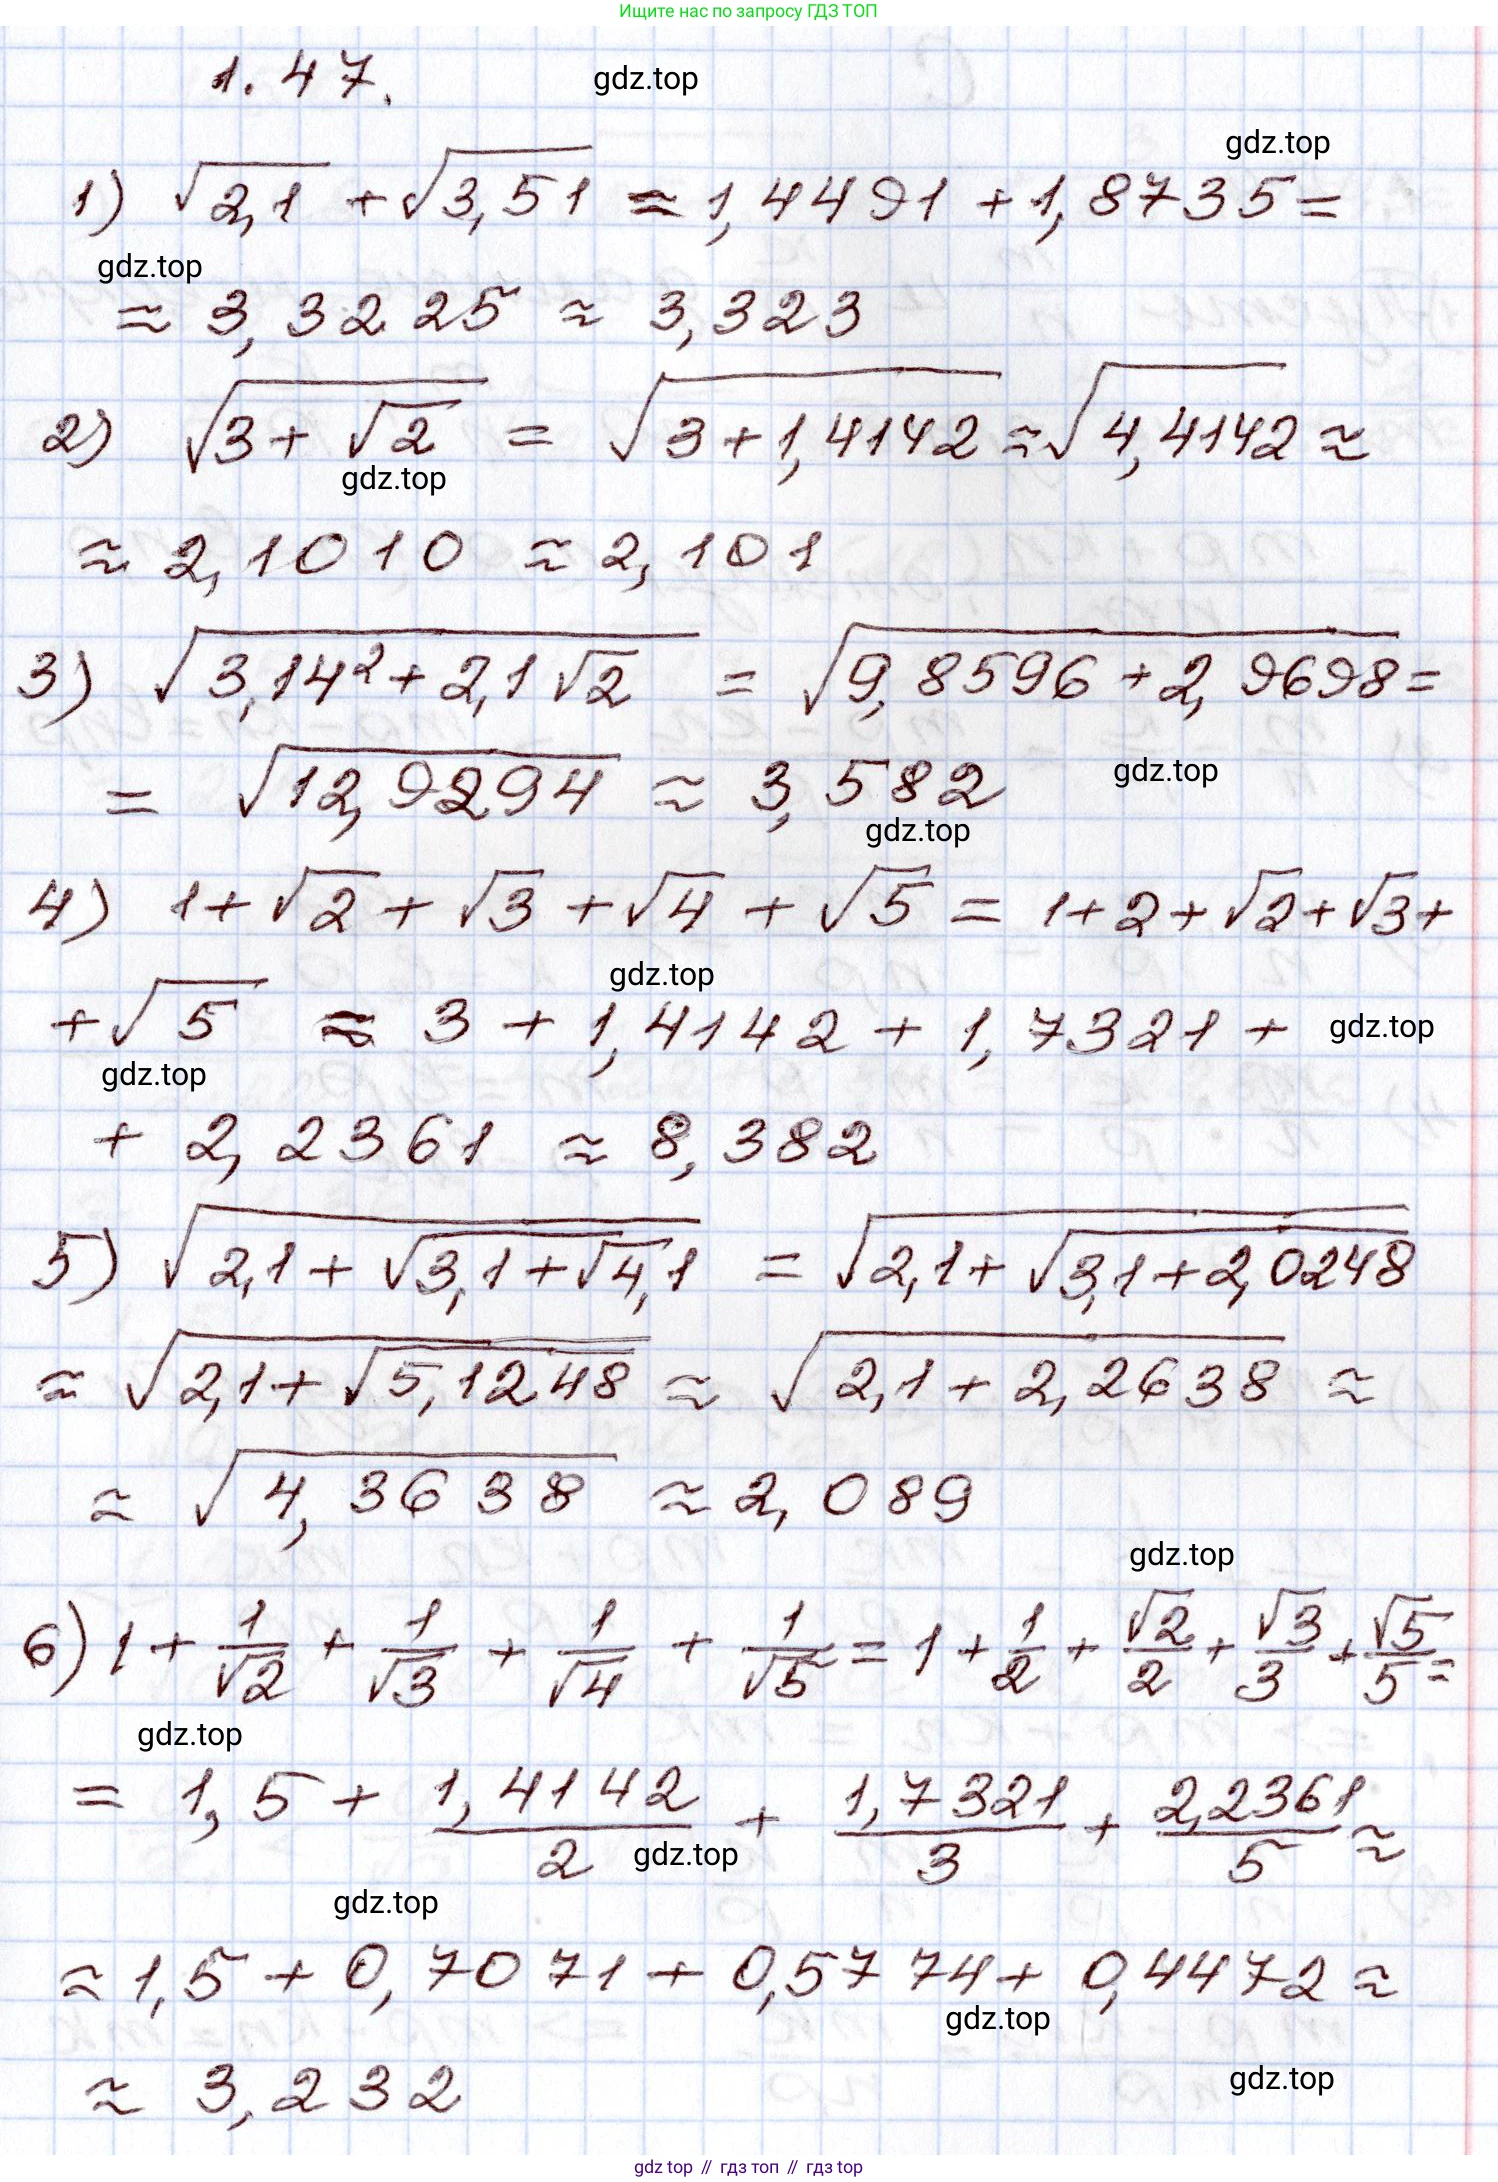 Ищите нас по запросу ГДЗ ТОП
1.47.
gdz.top
gdz.top
1) √2,1 + √3,51 ≈ 1,4491 + 1,8735 =
gdz.top
≈ 3,3225 ≈ 3,323
2) √(3 + √2) = √(3 + 1,4142) ≈ √4,4142 ≈
gdz.top
≈ 2,1010 ≈ 2,101
3) √(3,14² + 2,1√2) = √(9,8596 + 2,9698) =
= √12,9294 ≈ 3,582
gdz.top
gdz.top
4) 1 + √2 + √3 + √4 + √5 = 1 + 2 + √2 + √3 +
gdz.top
+ √5 ≈ 3 + 1,4142 + 1,7321 +
gdz.top
gdz.top
+ 2,2361 ≈ 8,382
5) √(2,1 + √(3,1 + √4,1)) = √(2,1 + √(3,1 + 2,0248))
≈ √(2,1 + √5,1248) ≈ √(2,1 + 2,2638) ≈
≈ √4,3638 ≈ 2,089
gdz.top
6) 1 + 1/√2 + 1/√3 + 1/√4 + 1/√5 = 1 + 1/2 + √2/2 + √3/3 + √5/5 =
gdz.top
= 1,5 + 1,4142/2 + 1,7321/3 + 2,2361/5 ≈
gdz.top
gdz.top
≈ 1,5 + 0,7071 + 0,5774 + 0,4472 ≈
gdz.top
≈ 3,232
gdz.top
gdz top // гдз топ // гдз top